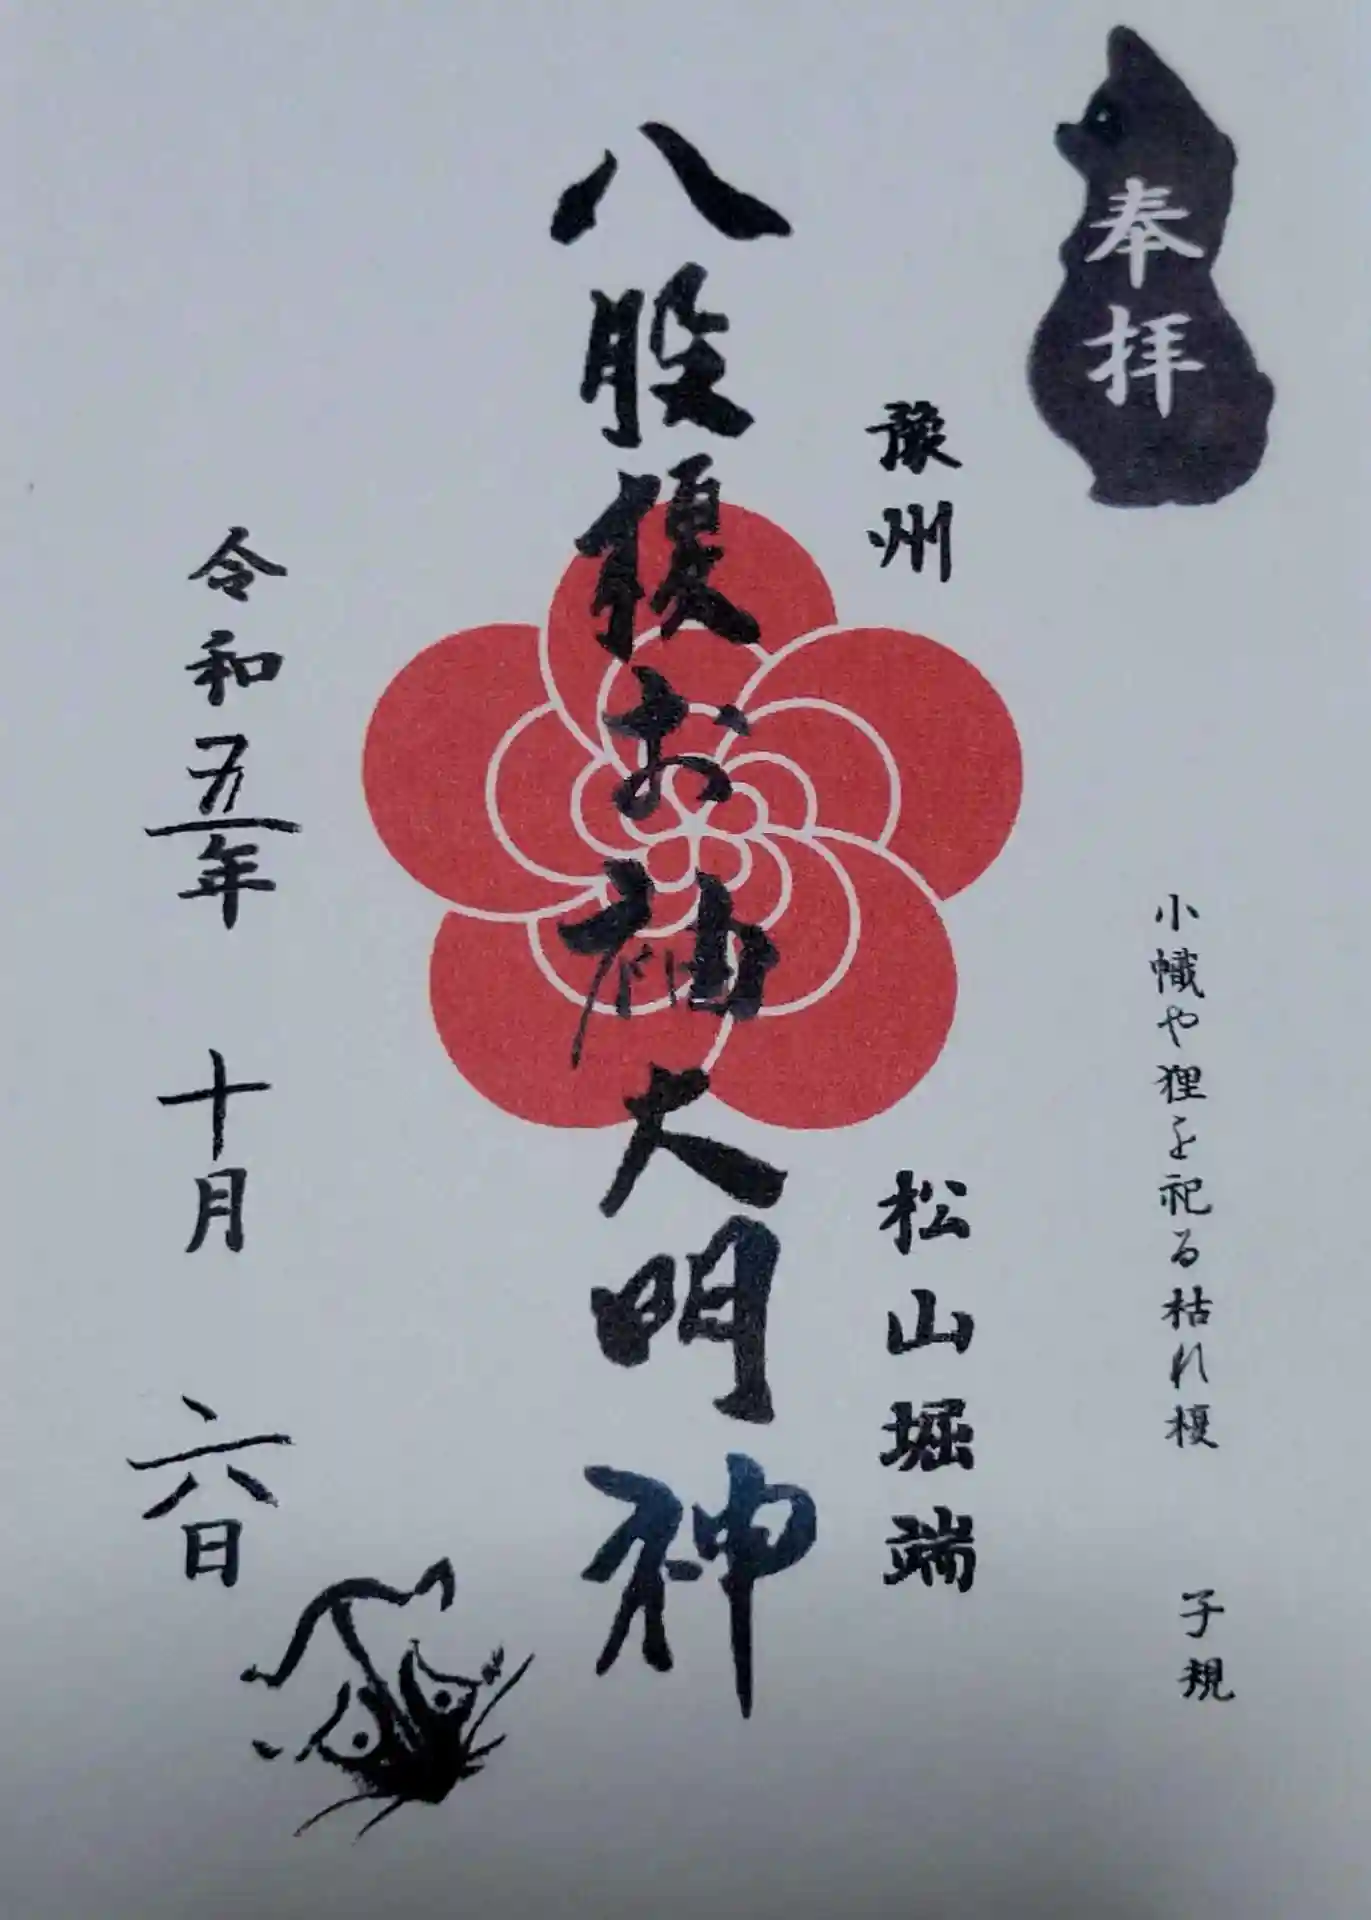 奉拝
小幟や狸を祀る枯れ榎 子規
豫州 松山堀端
八股榎お袖大明神
令和五年 十月 六日